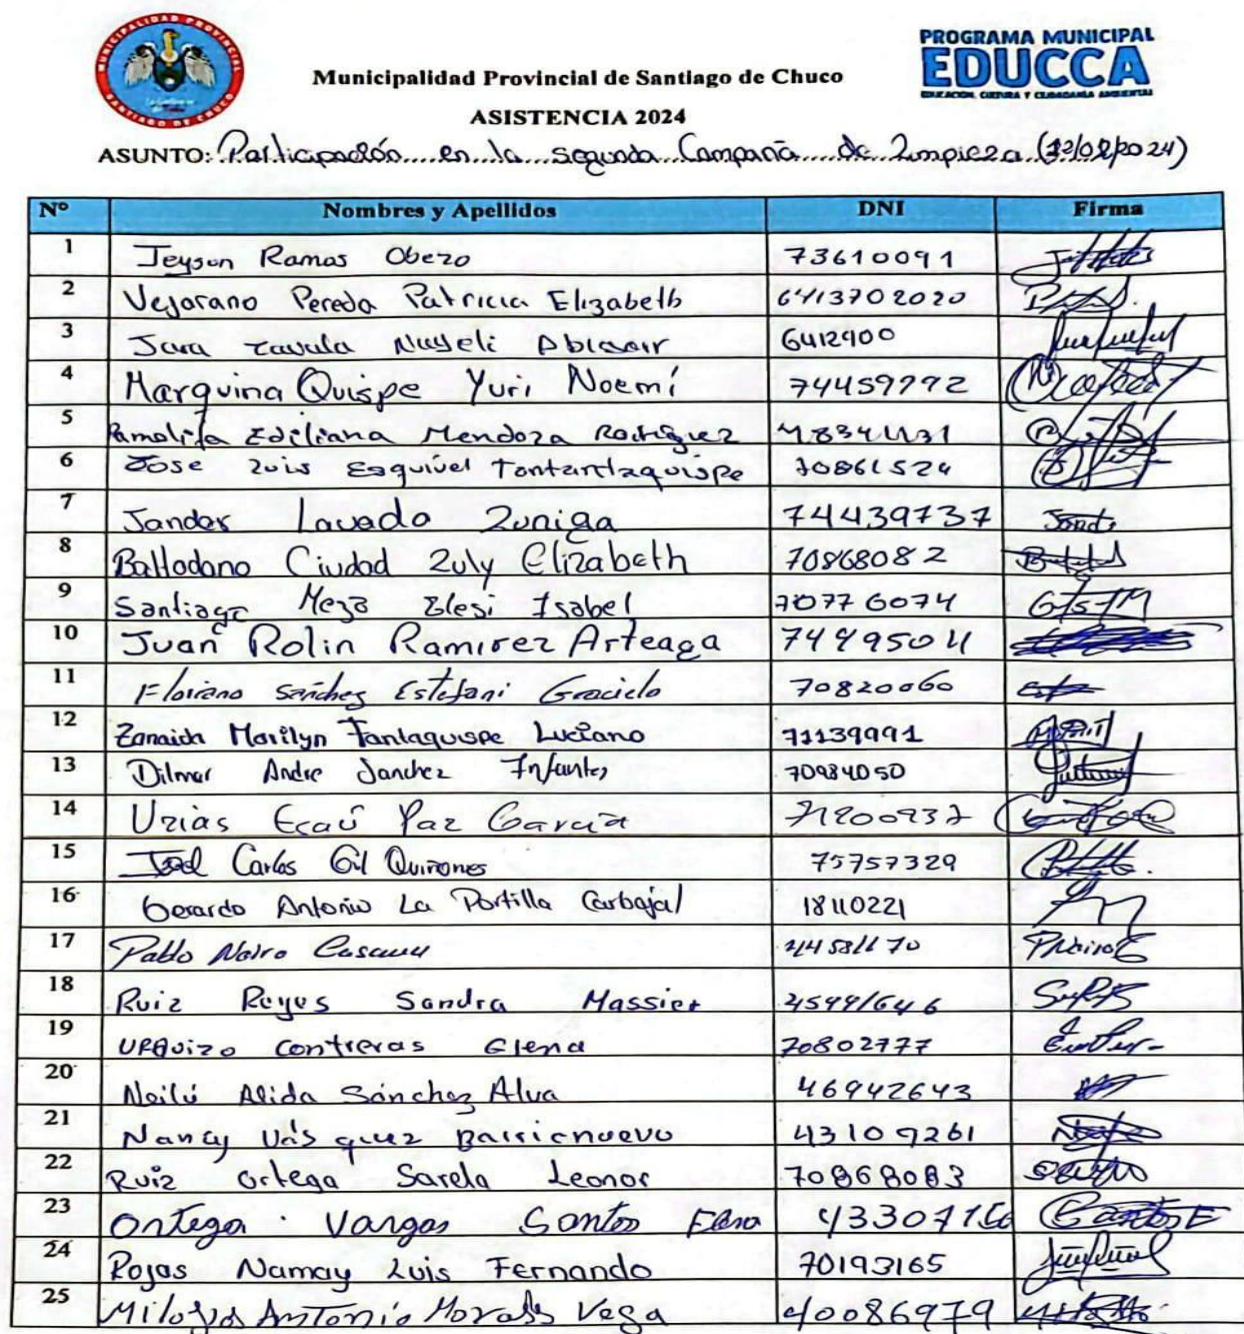 MUNICIPALIDAD PROVINCIAL
SANTIAGO DE CHUCO
PROGRAMA MUNICIPAL
EDUCCA
EDUCACION, CULTURA Y CIUDADANÍA AMBIENTAL
Municipalidad Provincial de Santiago de Chuco
ASISTENCIA 2024
ASUNTO: Participación en la segunda Campaña de Limpieza
Nº Nombres y Apellidos DNI Firma
1 Jeyson Ramos Obezo 73610091
2 Vejarano Pereda Patricia Elizabeth 6413702020
3 Jara Zavala Nayeli 6412900
4 Marquina Quispe Yuri Noemí
5 Ediliana Mendoza Rodríguez
6 Jose Luis Esquivel Tantantaquispe 70861524
7 Jander Lavado Zuniga 74439737
8 Baltodano Ciudad Zuly Elizabeth 70868082
9 Santiago Meza Isabel 70776074
10 Juan Rolin Ramirez Arteaga
11 Floreano Sanchez Estefani Graciela 70820060
12 Zanaida Marilyn Tantaquispe Luciano 71139991
13 Dilmer Andre Sanchez Infantes 70984050
14 Urias Paz Garcia
15 Joel Carlos Gil Quiñones 75757329
16 Gerardo Antonio La Portilla Carbajal 18110221
17 Pablo Nairo
18 Ruiz Reyes Sandra Massiet
19 Urquizo Contreras Elena 70802777
20 Neilú Alida Sánchez Alva 46942643
21 Nancy Vásquez Barrionuevo 43109261
22 Ruiz Ortega Sarela Leonor 70868083
23 Ortega Vargas Santos Elena
24 Rojas Namay Luis Fernando 70193165
25 Milagros Antonio Morales Vega 40086979